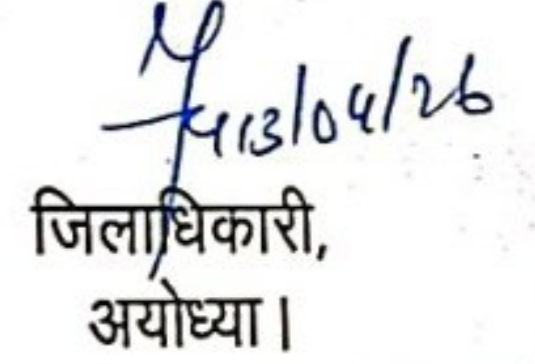 13/04/26
जिलाधिकारी,
अयोध्या।